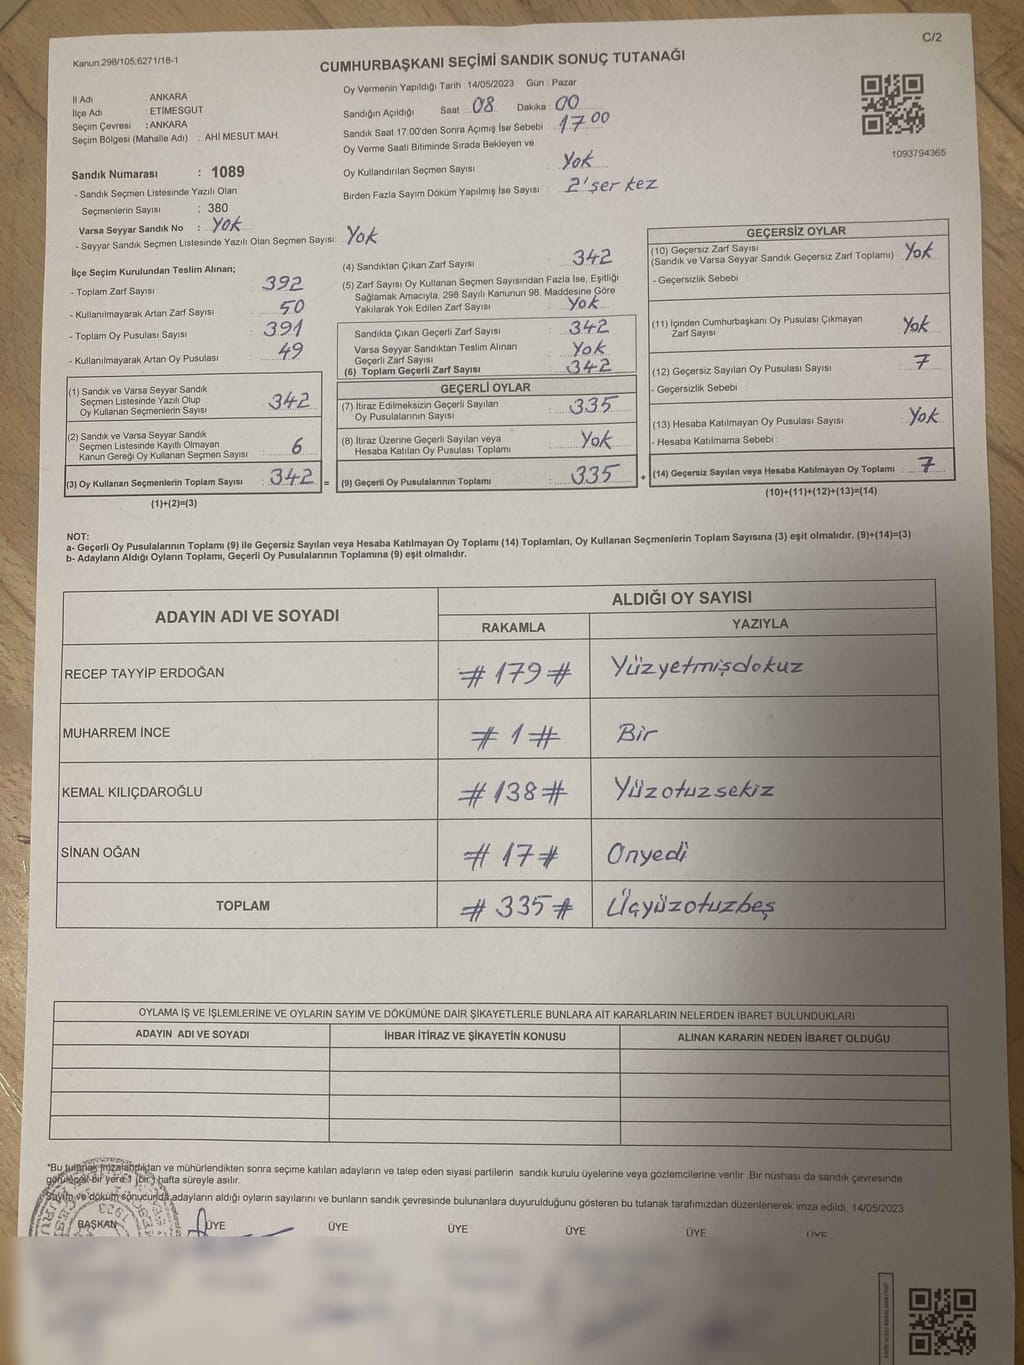 C/2
Kanun:298/105,6271/18-1
CUMHURBAŞKANI SEÇİMİ SANDIK SONUÇ TUTANAĞI
İl Adı : ANKARA
İlçe Adı : ETİMESGUT
Seçim Çevresi : ANKARA
Seçim Bölgesi (Mahalle Adı) : AHİ MESUT MAH.
Sandık Numarası : 1089
- Sandık Seçmen Listesinde Yazılı Olan
Seçmenlerin Sayısı : 380
Varsa Seyyar Sandık No : Yok
- Seyyar Sandık Seçmen Listesinde Yazılı Olan Seçmen Sayısı: Yok
Oy Vermenin Yapıldığı Tarih : 14/05/2023 Gün : Pazar
Sandığın Açıldığı Saat : 08 Dakika : 00
Sandık Saat 17.00'den Sonra Açımış İse Sebebi : 17 00
Oy Verme Saati Bitiminde Sırada Bekleyen ve
Oy Kullandırılan Seçmen Sayısı : Yok
Birden Fazla Sayım Döküm Yapılmış İse Sayısı : 2'şer kez
1093794365
İlçe Seçim Kurulundan Teslim Alınan;
- Toplam Zarf Sayısı : 392
- Kullanılmayarak Artan Zarf Sayısı : 50
- Toplam Oy Pusulası Sayısı : 391
- Kullanılmayarak Artan Oy Pusulası : 49
(1) Sandık ve Varsa Seyyar Sandık
Seçmen Listesinde Yazılı Olup
Oy Kullanan Seçmenlerin Sayısı : 342
(2) Sandık ve Varsa Seyyar Sandık
Seçmen Listesinde Kayıtlı Olmayan
Kanun Gereği Oy Kullanan Seçmen Sayısı : 6
(3) Oy Kullanan Seçmenlerin Toplam Sayısı : 342 =
(1)+(2)=(3)
(4) Sandıktan Çıkan Zarf Sayısı : 342
(5) Zarf Sayısı Oy Kullanan Seçmen Sayısından Fazla İse, Eşitliği
Sağlamak Amacıyla, 298 Sayılı Kanunun 98. Maddesine Göre
Yakılarak Yok Edilen Zarf Sayısı : Yok
Sandıkta Çıkan Geçerli Zarf Sayısı : 342
Varsa Seyyar Sandıktan Teslim Alınan
Geçerli Zarf Sayısı : Yok
(6) Toplam Geçerli Zarf Sayısı : 342
GEÇERLİ OYLAR
(7) İtiraz Edilmeksizin Geçerli Sayılan
Oy Pusulalarının Sayısı : 335
(8) İtiraz Üzerine Geçerli Sayılan veya
Hesaba Katılan Oy Pusulası Toplamı : Yok
(9) Geçerli Oy Pusulalarının Toplamı : 335 +
GEÇERSİZ OYLAR
(10) Geçersiz Zarf Sayısı
(Sandık ve Varsa Seyyar Sandık Geçersiz Zarf Toplamı) : Yok
- Geçersizlik Sebebi :
(11) İçinden Cumhurbaşkanı Oy Pusulası Çıkmayan
Zarf Sayısı : Yok
(12) Geçersiz Sayılan Oy Pusulası Sayısı : 7
- Geçersizlik Sebebi :
(13) Hesaba Katılmayan Oy Pusulası Sayısı : Yok
- Hesaba Katılmama Sebebi :
(14) Geçersiz Sayılan veya Hesaba Katılmayan Oy Toplamı : 7
(10)+(11)+(12)+(13)=(14)
NOT:
a- Geçerli Oy Pusulalarının Toplamı (9) ile Geçersiz Sayılan veya Hesaba Katılmayan Oy Toplamı (14) Toplamları, Oy Kullanan Seçmenlerin Toplam Sayısına (3) eşit olmalıdır. (9)+(14)=(3)
b- Adayların Aldığı Oyların Toplamı, Geçerli Oy Pusulalarının Toplamına (9) eşit olmalıdır.
ADAYIN ADI VE SOYADI ALDIĞI OY SAYISI
RAKAMLA YAZIYLA
RECEP TAYYİP ERDOĞAN # 179 # Yüzyetmişdokuz
MUHARREM İNCE # 1 # Bir
KEMAL KILIÇDAROĞLU # 138 # Yüzotuzsekiz
SİNAN OĞAN # 17 # Onyedi
TOPLAM # 335 # Üçyüzotuzbeş
OYLAMA İŞ VE İŞLEMLERİNE VE OYLARIN SAYIM VE DÖKÜMÜNE DAİR ŞİKAYETLERLE BUNLARA AİT KARARLARIN NELERDEN İBARET BULUNDUKLARI
ADAYIN ADI VE SOYADI İHBAR İTİRAZ VE ŞİKAYETİN KONUSU ALINAN KARARIN NEDEN İBARET OLDUĞU
*Bu tutanak imzalandıktan ve mühürlendikten sonra seçime katılan adayların ve talep eden siyasi partilerin sandık kurulu üyelerine veya gözlemcilerine verilir. Bir nüshası da sandık çevresinde
görülecek bir yere 1 (bir) hafta süreyle asılır.
Sayım ve döküm sonucunda adayların aldığı oyların sayılarını ve bunların sandık çevresinde bulunanlara duyurulduğunu gösteren bu tutanak tarafımızdan düzenlenerek imza edildi. 14/05/2023
BAŞKAN ÜYE ÜYE ÜYE ÜYE ÜYE ÜYE